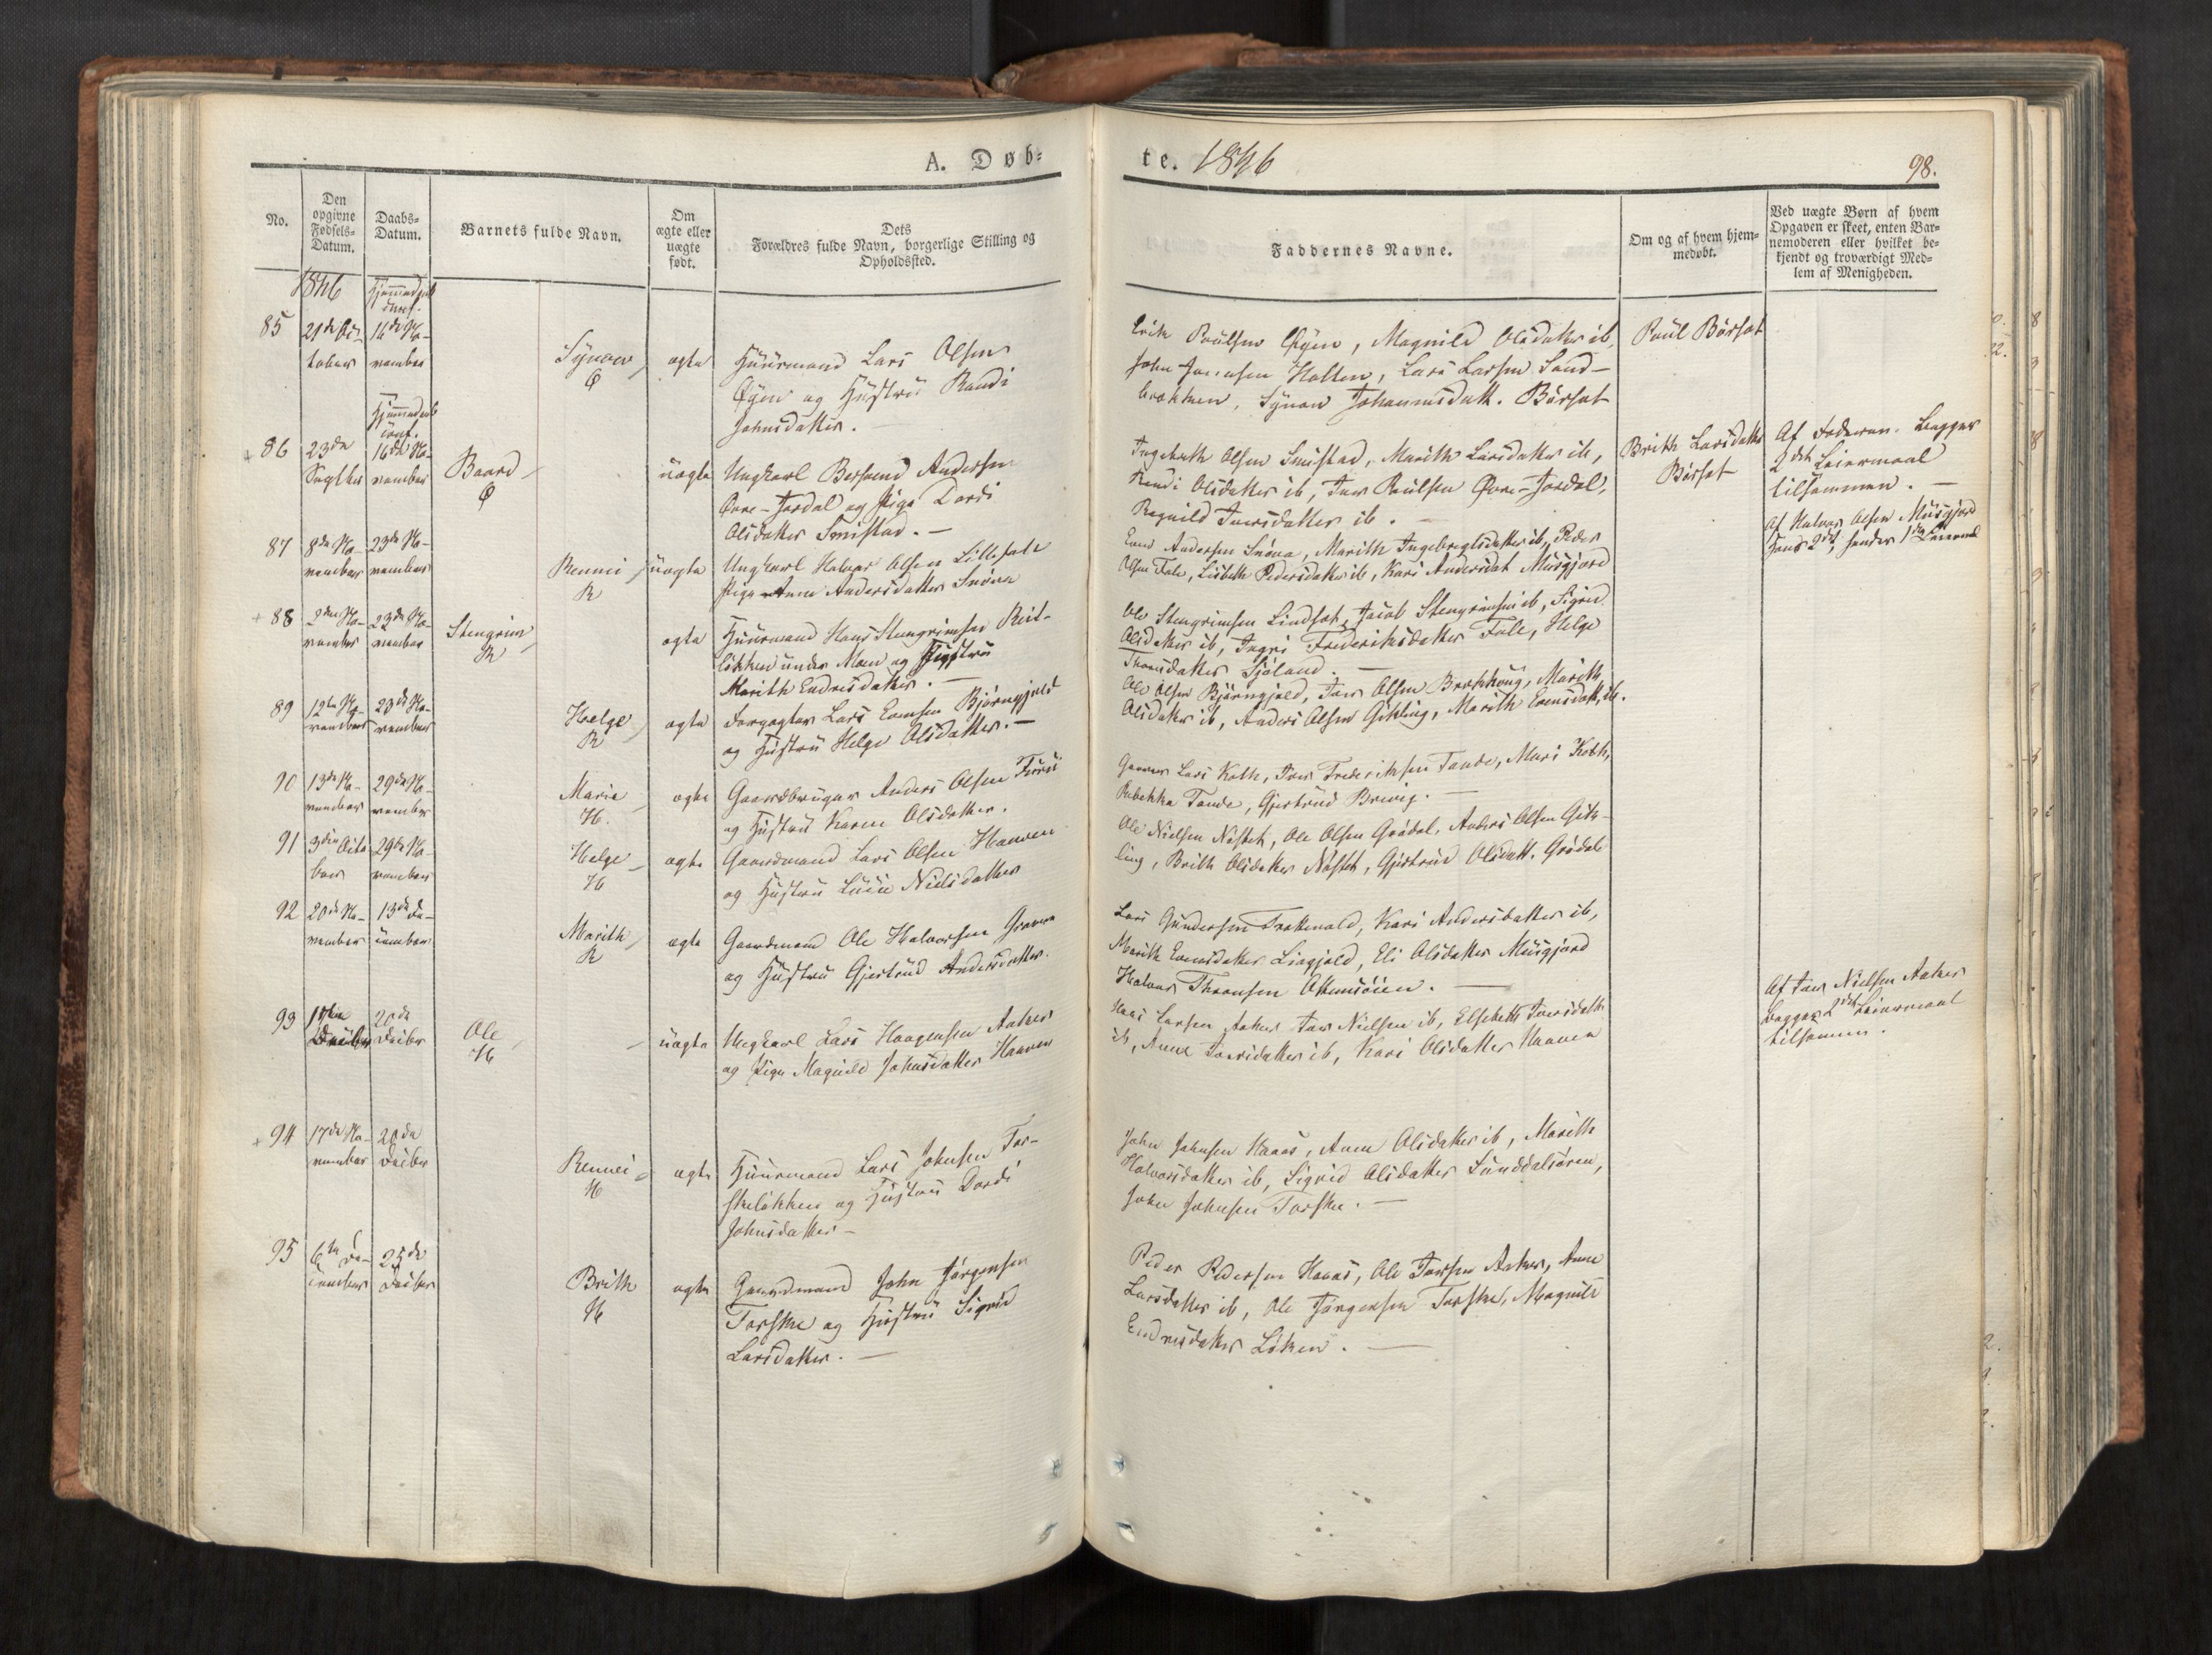 A. Døb=
te. 1846
98.
No.
Den opgivne Fødsels= Datum.
Daabs= Datum.
Barnets fulde Navn.
Om ægte eller uægte født.
Dets Forældres fulde Navn, borgerlige Stilling og Opholdssted.
Faddernes Navne.
Om og af hvem hjem= medøbt.
Ved uægte Børn af hvem
Opgaven er skeet, enten Bar=
nemoderen eller hvilket be=
kjendt og troværdigt Med=
lem af Menigheden.
1846
Hjemmedøbt
conf.
85 21de Oc- 16de No-
tober vember
Synøv ægte Huusmand Lars Olsen
Ø
Øyen og Hustru Randi
Johnsdatter.
Erik Poulsen Øyen, Magnild Olsdatter ib,
John Johnsen Holten, Lars Larsen Sand-
brækken, Synøv Johannesdatt. Børset
Poul Børset
Hjemmedøbt
conf.
+ 86 23de 16de No-
Septbr vember
Baard
Ø
uægte Ungkarl Andersen
Øvre-Jordal og Pige Dordi
Olsdatter Smistad. —
Ingebreth Olsen Smistad, Marith Larsdatter ib,
Randi Olsdatter ib, Iver Poulsen Øvre-Jordal,
Ragnild Iversdatter ib.
Brith Larsdatter
Børset
Af Faderen. Begges
2det Leiermaal
tilsammen. —
87 8de No- 23de No-
vember vember
Rennei uægte Ungkarl Halvor Olsen Lillefale
R
Pige Anne Andersdatter Snøva
Even Andersen Snøva, Marith Ingebregtsdatter ib, Peder
Olsen Fale, Lisbeth Pedersdatter ib, Kari Andersdat Musgjerd
Af Halvor Olsen Musgjerd
Hans 2det, hendes 1ste Leiermaal
+ 88 2den No- 23de No-
vember vember
Stengrim
R
ægte Huusmand Hans Stengrimsen Reit-
løkken under Moen og Hustru
Marith Endresdatter. —
Ole Stengrimsen Lindset, Jacob Stengrimsen ib, Sigrid
Olsdatter ib, Ingri Frederiksdatter Fale, Helge
Thoresdatter Sjøland. —
89 12te No- 23de No-
vember vember
Helge ægte Forpagter Lars Evensen Bjørngjeld
R
og Hustru Helge Olsdatter. —
Ole Olsen Bjørngjeld, Iver Olsen Brækhaug, Marith
Olsdatter ib, Anders Olsen Gikling, Marith Evensdatt. ib.
90 13de No- 29de No-
vember vember
Marie ægte Gaardbruger Anders Olsen Furu
H.
og Hustru Karen Olsdatter.
Lars Koth, Iver Frederiksen Tande, Mari Koth,
Rebekka Tande, Gjertrud Brevig. —
91 3die Octo 29de No-
ber vember
Helge ægte Gaardmand Lars Olsen Hoaven
H
og Hustru Lucie Nielsdatter
Ole Nielsen Nøstet, Ole Olsen Grødal, Anders Olsen Gik-
ling, Brith Olsdatter Nøstet, Gjertrud Olsdatt. Grødal
92 20de No- 13de De-
vember cember
Marith ægte Gaardmand Ole Halvorsen Graven
R
og Hustru Gjertrud Andersdatter.
Lars Gundersen Trædvold, Kari Andersdatter ib,
Marith Evensdatter Liagjeld, Eli Olsdatter Musgjerd
Halvor Thoresen Ottemsøien. —
93 20de
Decbr Decbr
Ole
H
uægte Ungkarl Lars Haagensen Aaker
og Pige Magnild Johnsdatter Hoaven
Hans Larsen Aaker Iver Nielsen ib, Elsebeth Iversdatter
ib, Anne Iversdatter ib, Kari Olsdatter Hoaven
Af Iver Nielsen Aaker
Begges 2det Leiermaal
tilsammen.
+ 94 17de No- 20de
vember Decbr
Rennei ægte Huusmand Lars Johnsen Tor-
H
skeløkken og Hustru Dordi
Johnsdatter —
John Johnsen Hoaas, Anne Olsdatter ib, Marith
Halvorsdatter ib, Sigrid Olsdatter Sunddalsøren,
John Johnsen Torske. —
95 6te De- 25de
cember Decbr
Brith ægte Gaardmand John Jørgensen
H
Torske og Hustru Sigrid
Larsdatter. —
Peder Pedersen Hoaas, Ole Iversen Aaker, Anne
Larsdatter ib, Ole Jørgensen Torske, Magnild
Endresdatter Løken. —